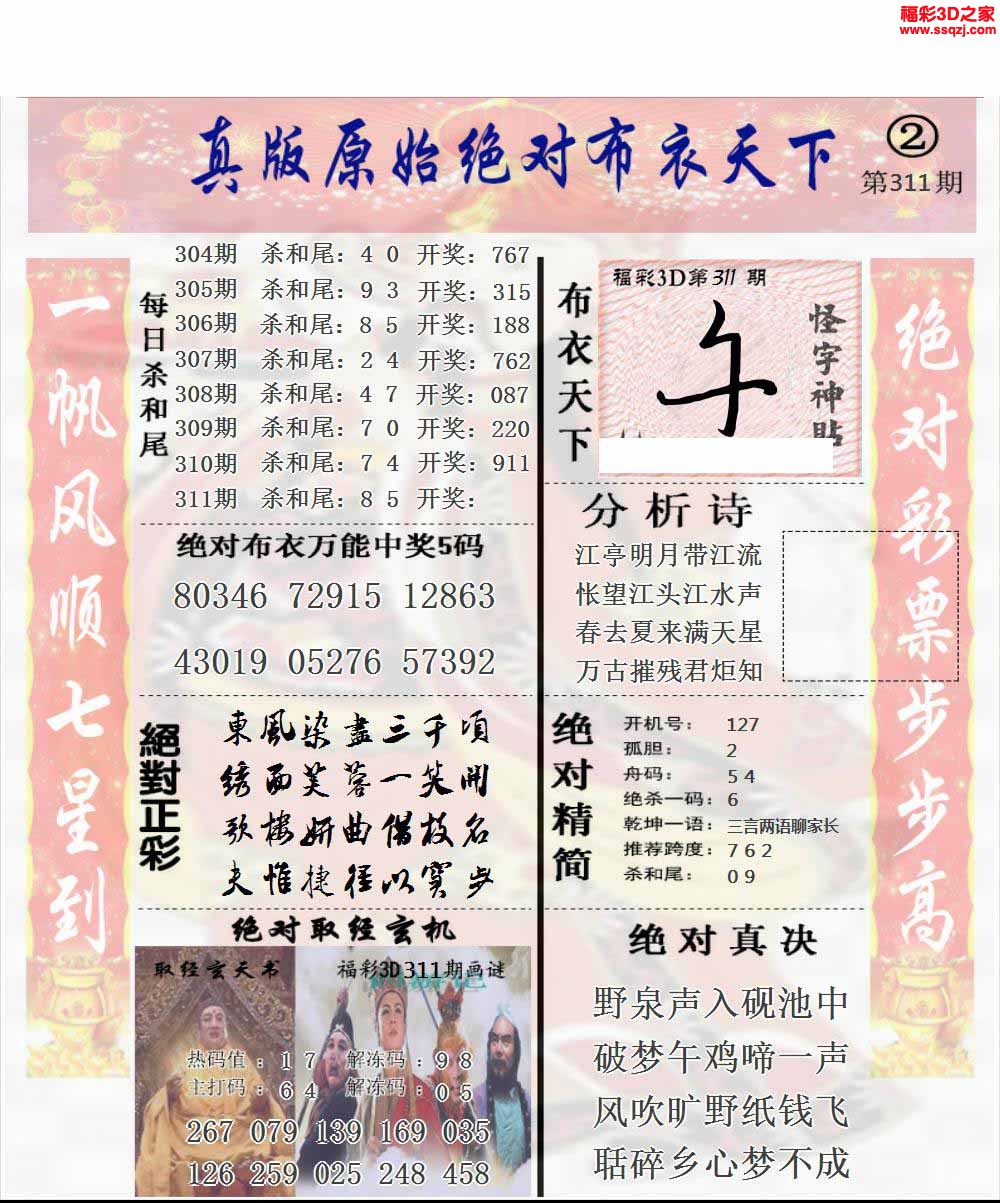 福彩3D之家
www.ssqzj.com
真版原始绝对布衣天下
②
第311期
一帆风顺七星到
每日杀和尾
304期 杀和尾：4 0 开奖：767
305期 杀和尾：9 3 开奖：315
306期 杀和尾：8 5 开奖：188
307期 杀和尾：2 4 开奖：762
308期 杀和尾：4 7 开奖：087
309期 杀和尾：7 0 开奖：220
310期 杀和尾：7 4 开奖：911
311期 杀和尾：8 5 开奖：
绝对布衣万能中奖5码
80346 72915 12863
43019 05276 57392
絕對正彩
東風染盡三千頃
绣面芙蓉一笑開
歌樓妍曲借枝名
夫惟捷径以窘步
绝对取经玄机
取经玄天书
福彩3D311期画谜
热码值：1 7 解冻码：9 8
主打码：6 4 解冻码：0 5
267 079 139 169 035
126 259 025 248 458
布衣天下
福彩3D第311期
怪字神贴
分析诗
江亭明月带江流
怅望江头江水声
春去夏来满天星
万古摧残君炬知
绝对精简
开机号： 127
孤胆： 2
舟码： 5 4
绝杀一码：6
乾坤一语：三言两语聊家长
推荐跨度：7 6 2
杀和尾： 0 9
绝对真决
野泉声入砚池中
破梦午鸡啼一声
风吹旷野纸钱飞
聒碎乡心梦不成
绝对彩票步步高